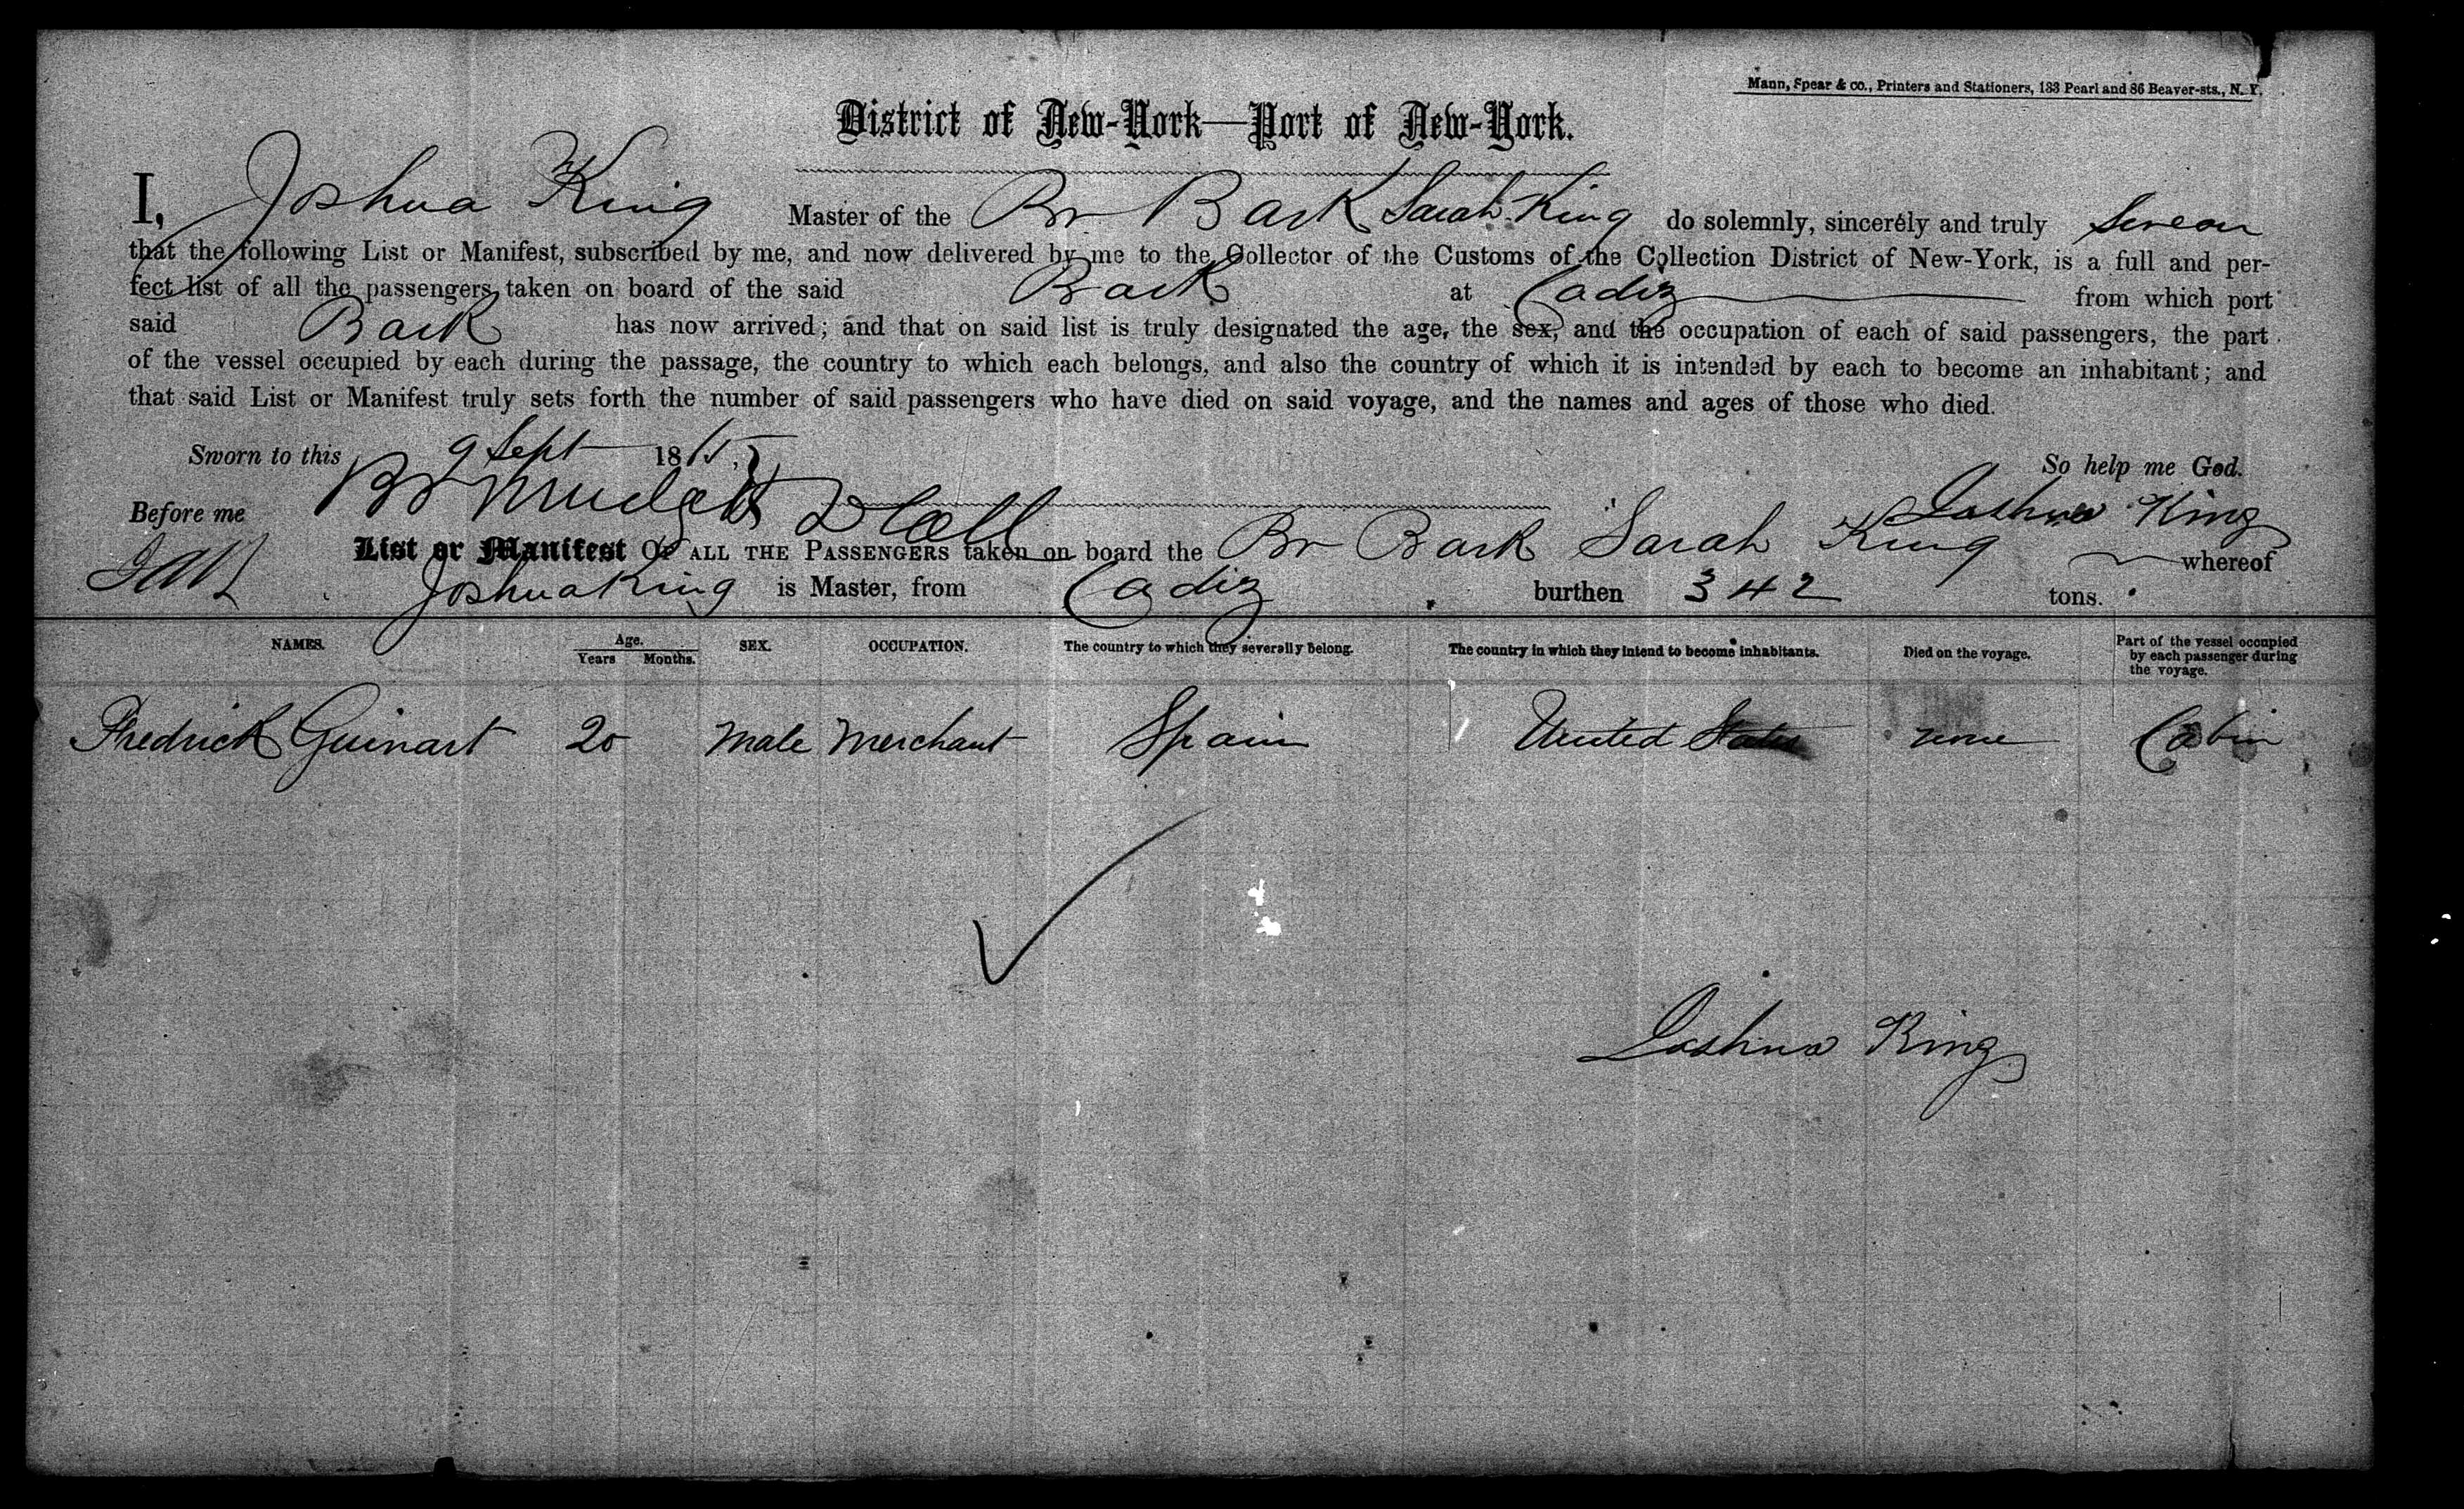 Mann, Spear & co., Printers and Stationers, 133 Pearl and 86 Beaver-sts., N. Y.
District of New-York—Port of New-York.
I, Joshua King Master of the Br Bark Sarah King do solemnly, sincerely and truly Swear
that the following List or Manifest, subscribed by me, and now delivered by me to the Collector of the Customs of the Collection District of New-York, is a full and per-
fect list of all the passengers taken on board of the said Bark at Cadiz from which port
said Bark has now arrived; and that on said list is truly designated the age, the sex, and the occupation of each of said passengers, the part
of the vessel occupied by each during the passage, the country to which each belongs, and also the country of which it is intended by each to become an inhabitant; and
that said List or Manifest truly sets forth the number of said passengers who have died on said voyage, and the names and ages of those who died.
Sworn to this 9 Sept 1865 So help me God.
Before me D Coll Joshua King
List or Manifest OF ALL THE PASSENGERS taken on board the Br Bark Sarah King whereof
Joshua King is Master, from Cadiz burthen 342 tons.
NAMES. Age. Years Months. SEX. OCCUPATION. The country to which they severally belong. The country in which they intend to become inhabitants. Died on the voyage. Part of the vessel occupied by each passenger during the voyage.
Fredrick Guinart 20 Male Merchant Spain United States none Cabin
Joshua King